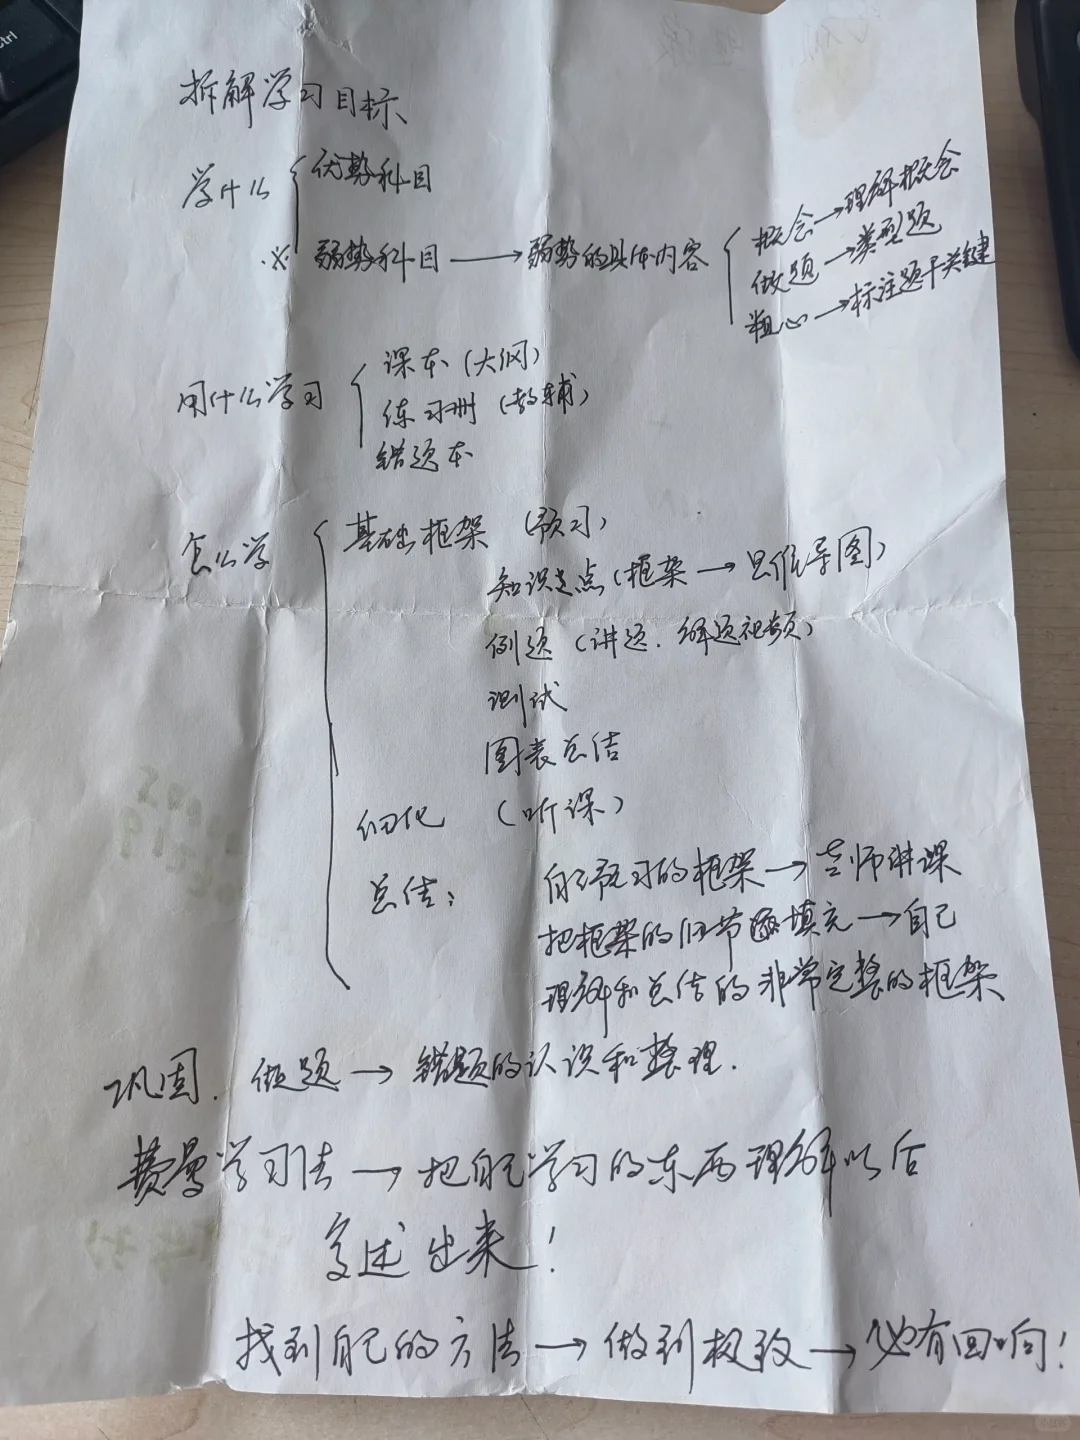 拆解学习目标
学什么
优势科目
※ 弱势科目 → 弱势的具体内容
概念 → 理解概念
做题 → 类型题
粗心 → 标注题干关键
用什么学习
课本 (大纲)
练习册 (教辅)
错题本
怎么学
基础框架 (预习)
知识点 (框架 → 思维导图)
例题 (讲题. 解题视频)
测试
图表总结
细化 (听课)
总结: 自己预习的框架 → 老师讲课
把框架的细节填充 → 自己
理解和总结的非常完整的框架
巩固. 做题 → 错题的认识和整理.
费曼学习法 → 把自己学习的东西理解以后
复述出来!
找到自己的方法 → 做到极致 → 必有回响!
Ctrl